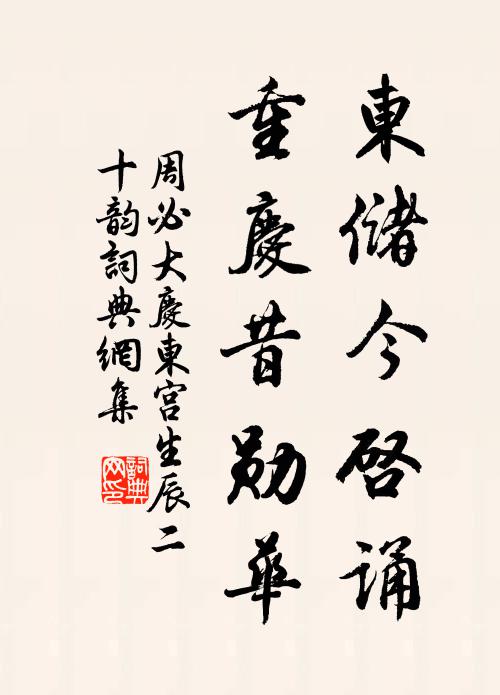 東儲今啓誦
重慶昔勛華
周必大慶東宮生辰二
十韵詞典網集
詞典
网印